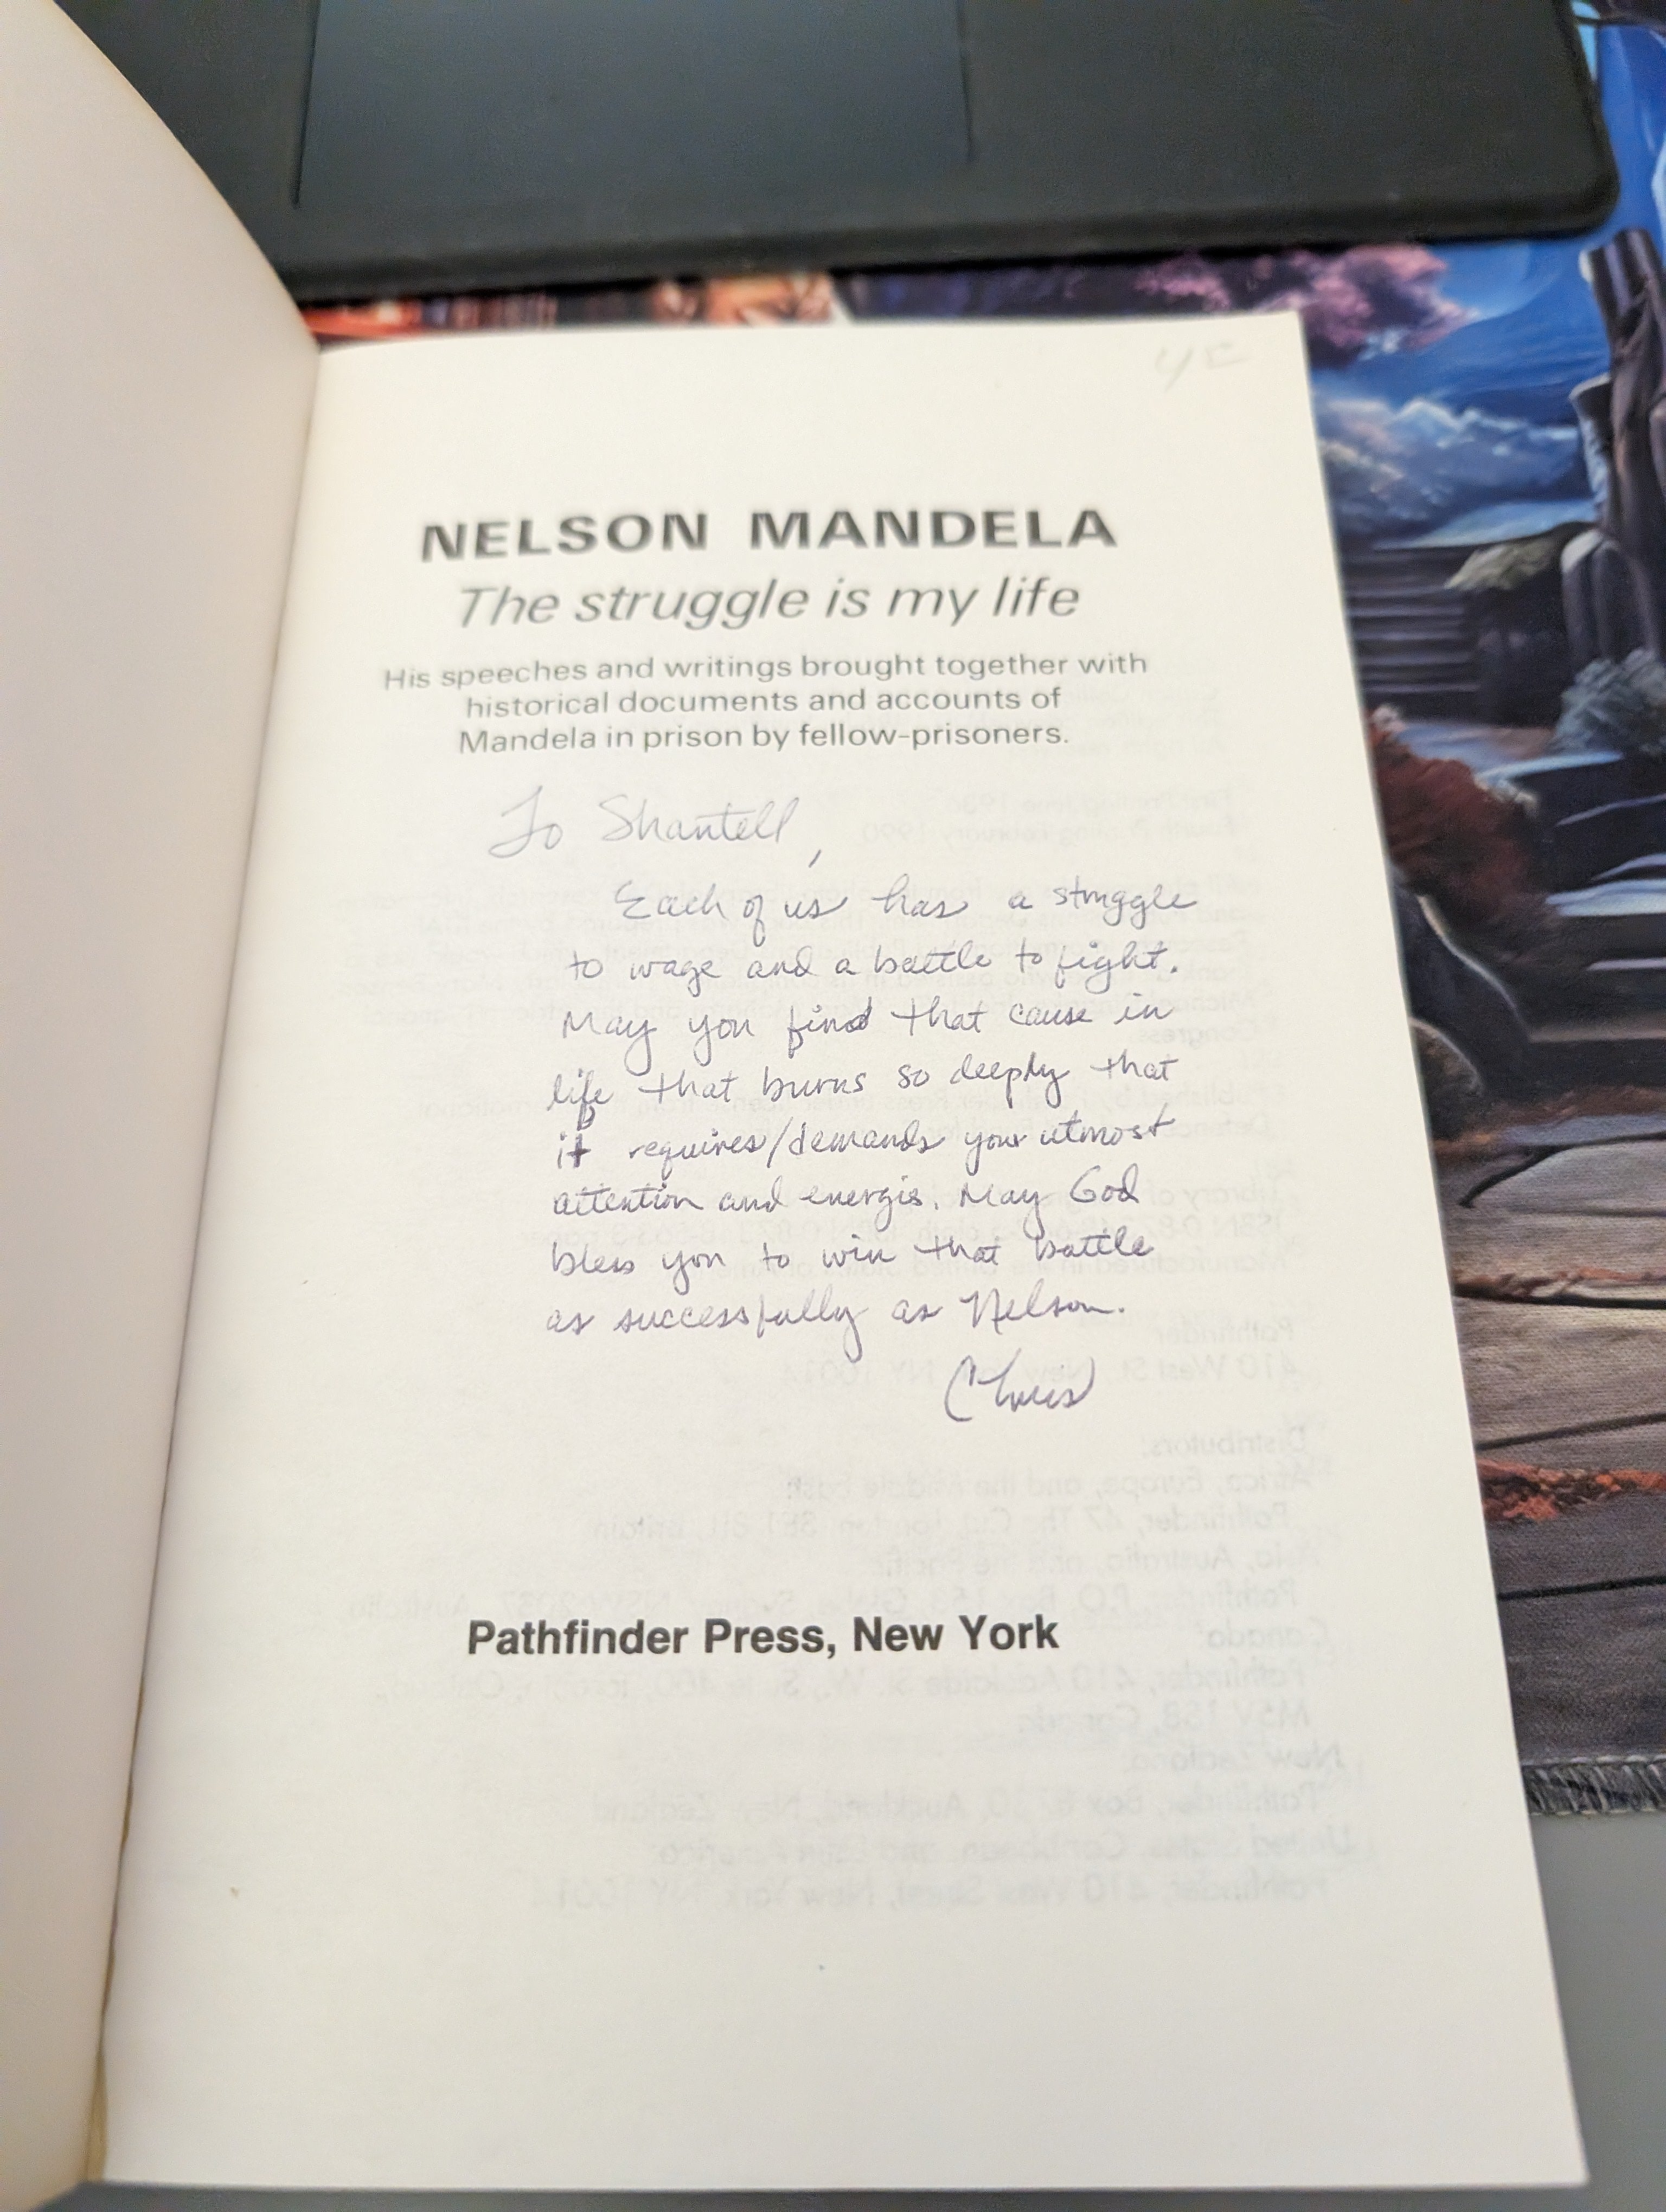 NELSON MANDELA
The struggle is my life
His speeches and writings brought together with
historical documents and accounts of
Mandela in prison by fellow-prisoners.
To Shantell,
Each of us has a struggle
to wage and a battle to fight.
May you find that cause in
life that burns so deeply that
it requires/demands your utmost
attention and energis. May God
bless you to win that battle
as successfully as Nelson.
Chris
Pathfinder Press, New York